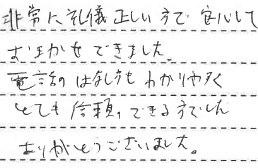 非常に礼儀正しい方で安心して
おまかせできました。
電話のはなし方もわかりやすく
とても信頼できる方でした
ありがとうございました。